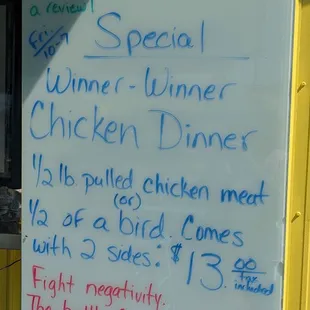 a review!
Fri.
10-7
Special
Winner-Winner
Chicken Dinner
1/2 lb pulled chicken meat
(or)
1/2 of a bird. Comes
with 2 sides: $13.00 tax included
Fight negativity.
The